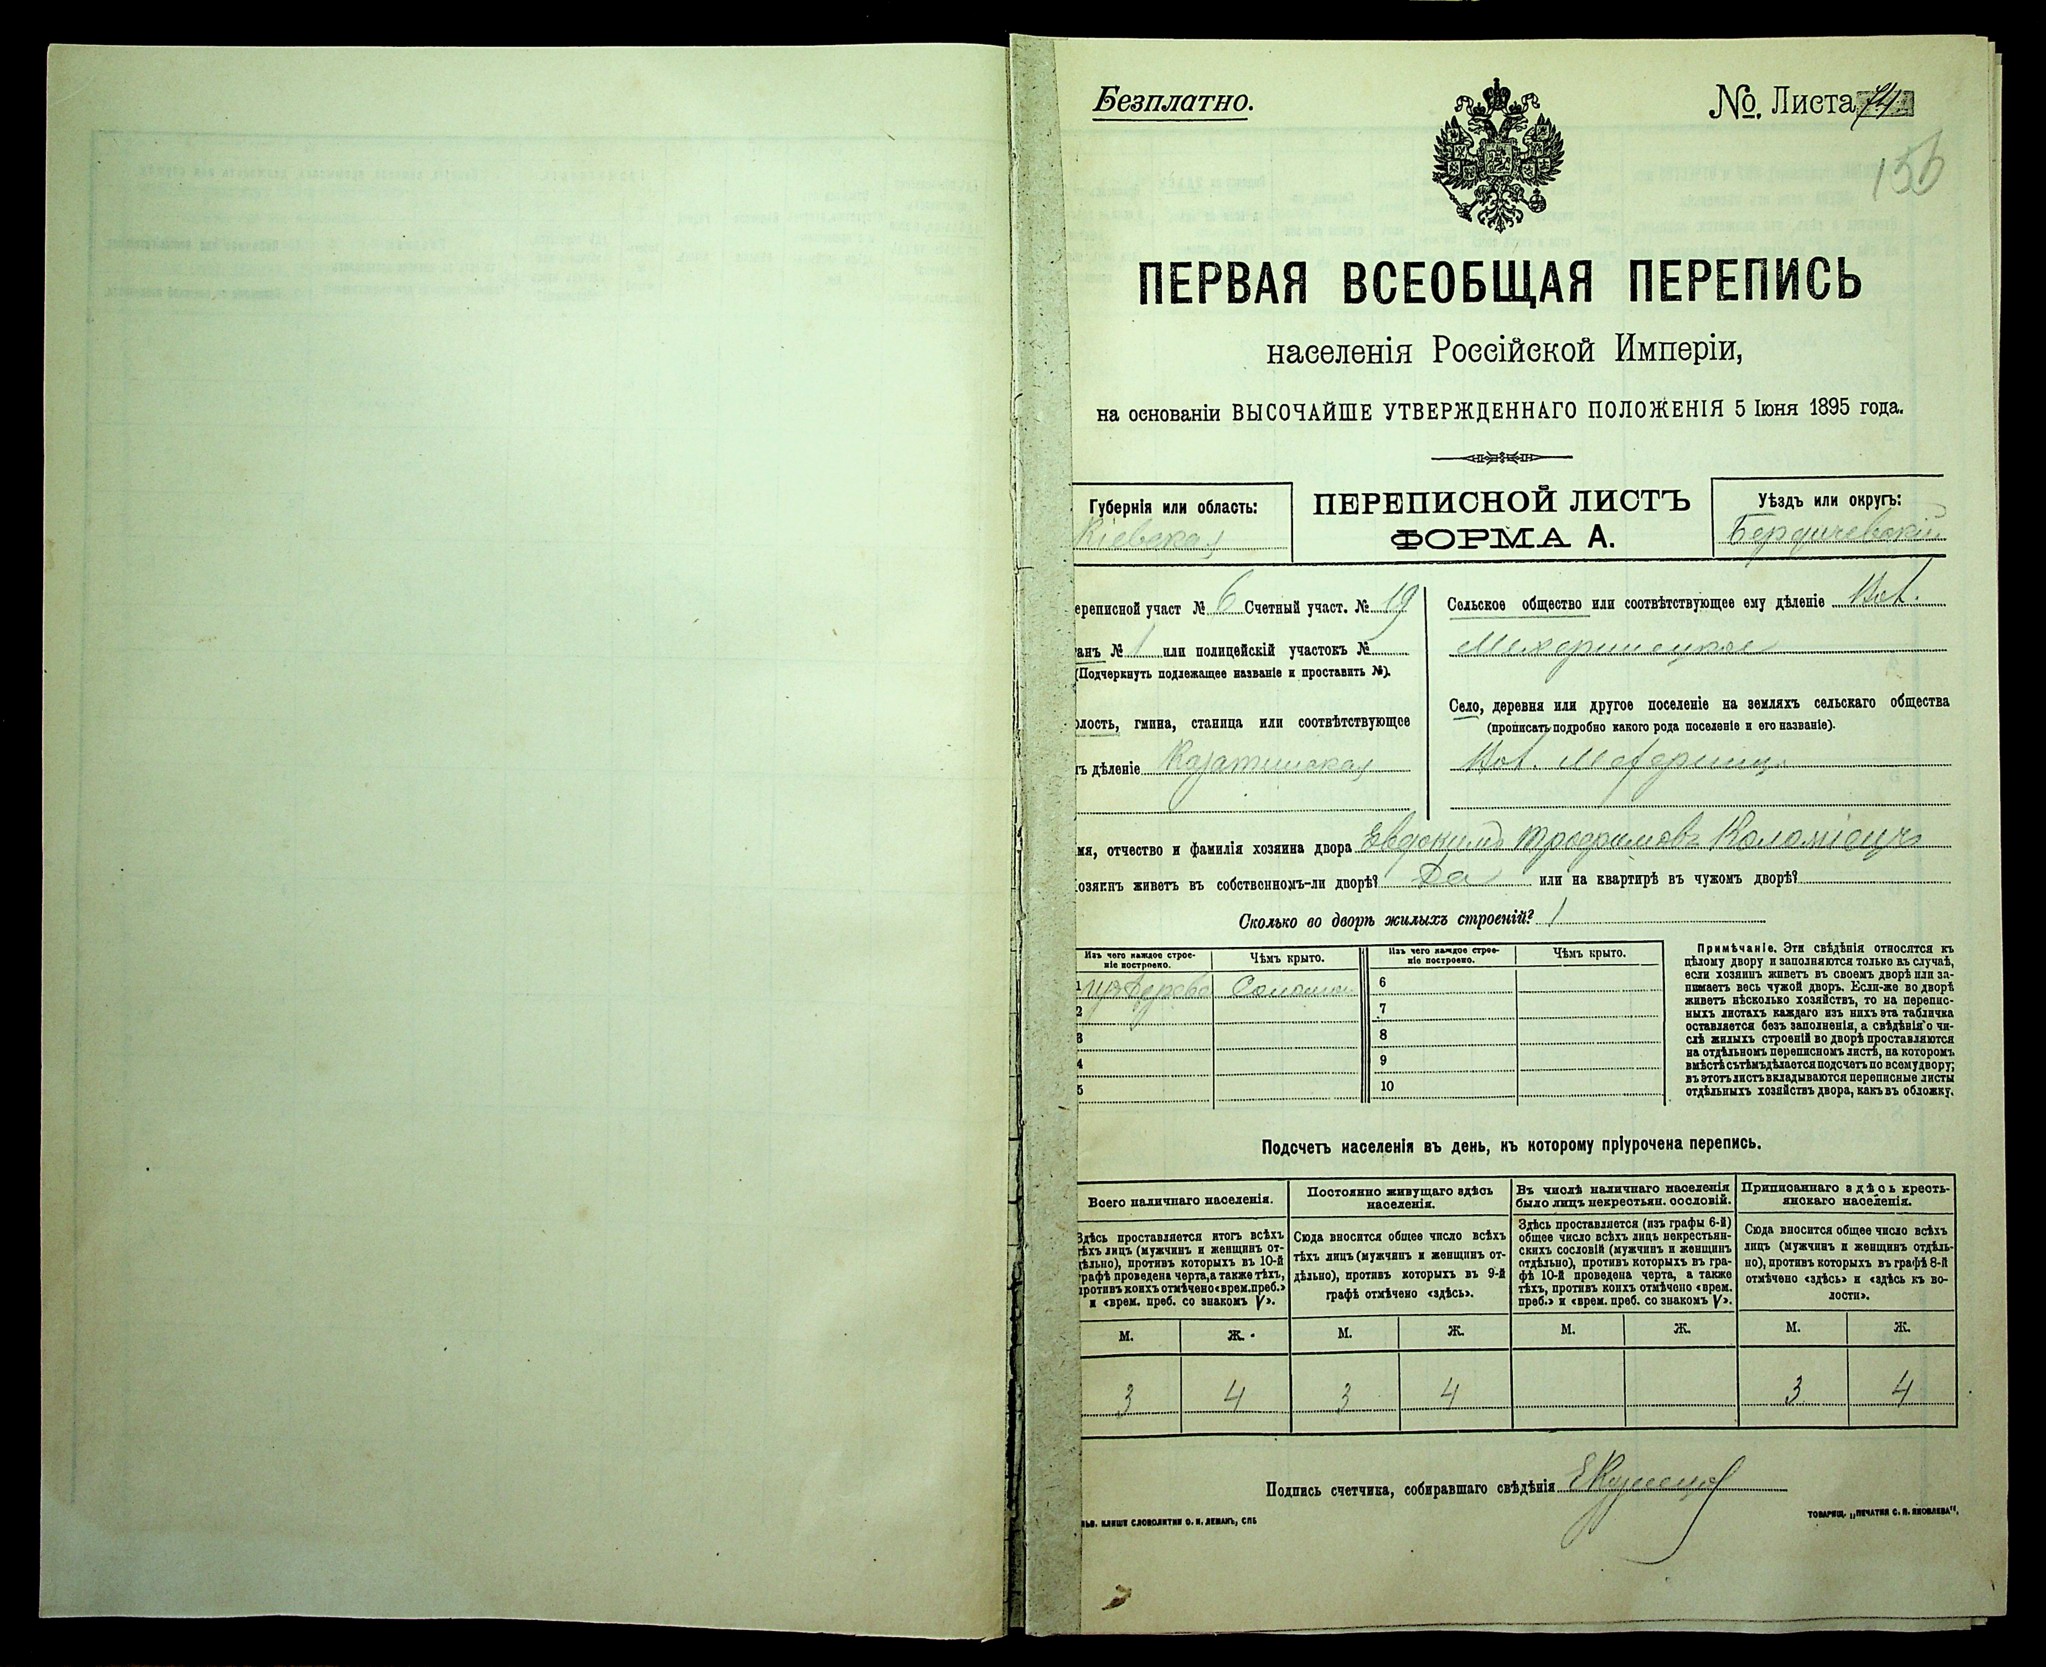 Безплатно.
№. Листа 74
156
ПЕРВАЯ ВСЕОБЩАЯ ПЕРЕПИСЬ
населенія Россійской Имперіи,
на основаніи ВЫСОЧАЙШЕ УТВЕРЖДЕННАГО ПОЛОЖЕНІЯ 5 Іюня 1895 года.
Губернія или область:
Кіевская
ПЕРЕПИСНОЙ ЛИСТЪ
ФОРМА А.
Уѣздъ или округъ:
Бердичевскій
ереписной участ № 6 Счетный участ. № 19
анъ № 1 или полицейскій участокъ №
(Подчеркнуть подлежащее названіе и проставить №).
олость, гмина, станица или соотвѣтствующее
ъ дѣленіе Казатинская
Сельское общество или соотвѣтствующее ему дѣленіе
Село, деревня или другое поселеніе на земляхъ сельскаго общества
(прописать подробно какого рода поселеніе и его названіе).
мя, отчество и фамилія хозяина двора Евдокимъ Трофимовъ Коломіецъ
озяинъ живетъ въ собственномъ-ли дворѣ? Да или на квартирѣ въ чужомъ дворѣ?
Сколько во дворѣ жилыхъ строеній? 1
Изъ чего каждое строе-
ніе построено.
Чѣмъ крыто.
Изъ чего каждое строе-
ніе построено.
Чѣмъ крыто.
1 изъ дерева Солома 6
2 7
3 8
4 9
5 10
Примѣчаніе. Эти свѣдѣнія относятся къ
цѣлому двору и заполняются только въ случаѣ,
если хозяинъ живетъ въ своемъ дворѣ или за-
нимаетъ весь чужой дворъ. Если-же во дворѣ
живетъ нѣсколько хозяйствъ, то на перепис-
ныхъ листахъ каждаго изъ нихъ эта табличка
оставляется безъ заполненія, а свѣдѣнія о чи-
слѣ жилыхъ строеній во дворѣ проставляются
на отдѣльномъ переписномъ листѣ, на которомъ
вмѣстѣ съ тѣмъ дѣлается подсчетъ по всему двору;
въ этотъ листъ вкладываются переписные листы
отдѣльныхъ хозяйствъ двора, какъ въ обложку.
Подсчетъ населенія въ день, къ которому пріурочена перепись.
Всего наличнаго населенія.
Здѣсь проставляется итогъ всѣхъ
тѣхъ лицъ (мужчинъ и женщинъ от-
дѣльно), противъ которыхъ въ 10-й
графѣ проведена черта, а также тѣхъ,
противъ коихъ отмѣчено «врем. преб.»
и «врем. преб. со знакомъ V».
Постоянно живущаго здѣсь
населенія.
Сюда вносится общее число всѣхъ
тѣхъ лицъ (мужчинъ и женщинъ от-
дѣльно), противъ которыхъ въ 9-й
графѣ отмѣчено «здѣсь».
Въ числѣ наличнаго населенія
было лицъ некрестьян. сословій.
Здѣсь проставляется (изъ графы 6-й)
общее число всѣхъ лицъ некрестьян-
скихъ сословій (мужчинъ и женщинъ
отдѣльно), противъ которыхъ въ гра-
фѣ 10-й проведена черта, а также
тѣхъ, противъ коихъ отмѣчено «врем.
преб.» и «врем. преб. со знакомъ V».
Приписаннаго здѣсь кресть-
янскаго населенія.
Сюда вносится общее число всѣхъ
лицъ (мужчинъ и женщинъ отдѣль-
но), противъ которыхъ въ графѣ 8-й
отмѣчено «здѣсь» и «здѣсь къ во-
лости».
М. Ж. М. Ж. М. Ж. М. Ж.
3 4 3 4 3 4
Подпись счетчика, собиравшаго свѣдѣнія
ЬВ. КЛИШЕ СЛОВОЛИТНИ О. И. ЛЕМАНЪ, СПБ
ТОВАРИЩ. „ПЕЧАТНЯ С. П. ЯКОВЛЕВА“.